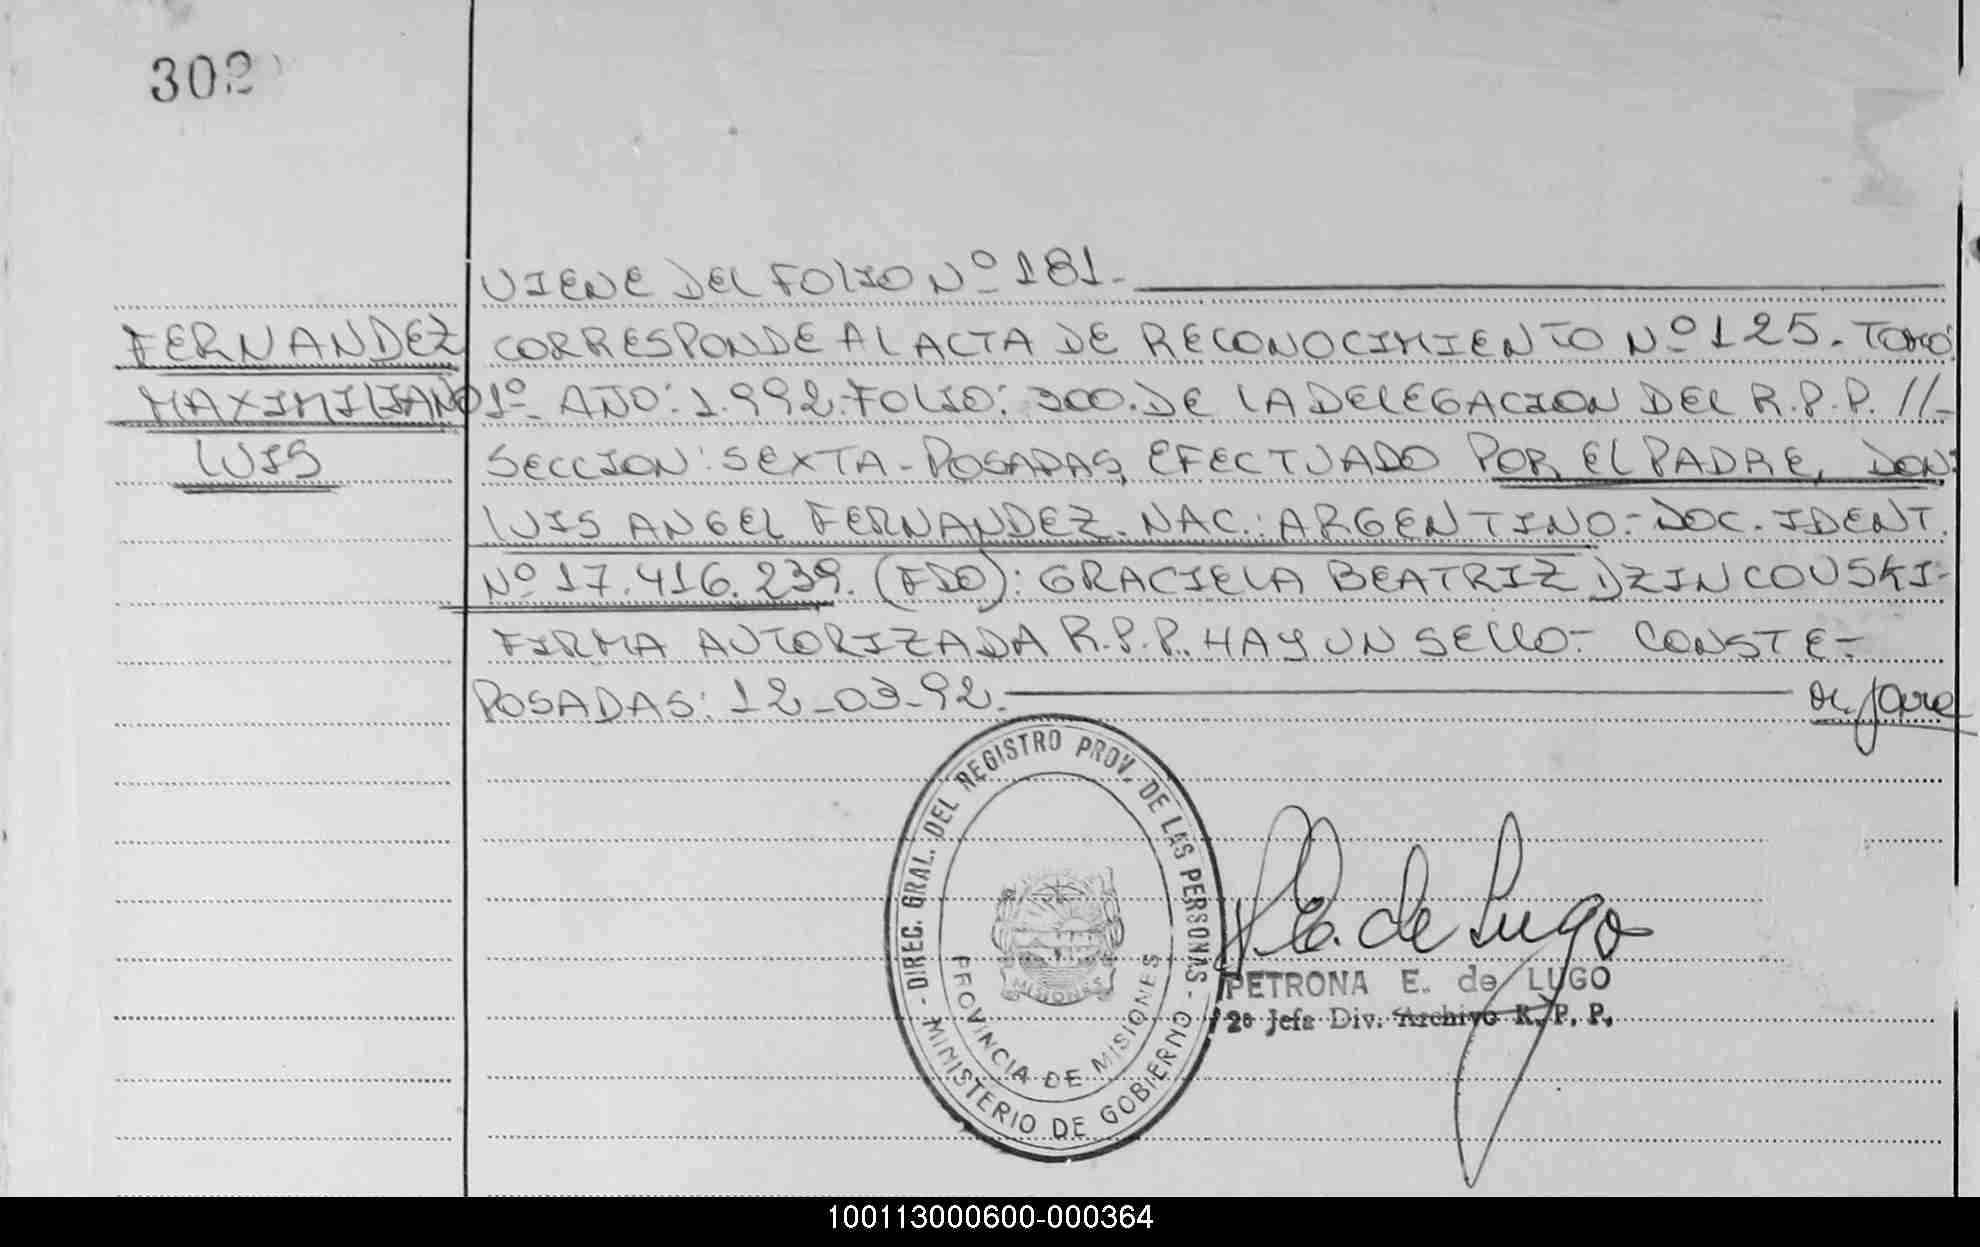 302
VIENE DEL FOLIO Nº 181.-
FERNANDEZ
MAXIMILIANO
LUIS
CORRESPONDE AL ACTA DE RECONOCIMIENTO Nº 125. TOMO
1º- AÑO: 1.992. FOLIO: 300. DE LA DELEGACION DEL R.P.P. //-
SECCION: SEXTA - POSADAS, EFECTUADO POR EL PADRE, DON:
LUIS ANGEL FERNANDEZ. NAC.: ARGENTINO.- DOC. IDENT.
Nº 17.416.239. (FDO): GRACIELA BEATRIZ DZINCOUSKI-
FIRMA AUTORIZADA R.P.P. HAY UN SELLO.- CONSTE-
POSADAS: 12-03-92.
- DIREC. GRAL. DEL REGISTRO PROV. DE LAS PERSONAS -
MINISTERIO DE GOBIERNO
PROVINCIA DE MISIONES
MISIONES
P. E. de Lugo
PETRONA E. de LUGO
2º Jefa Div. Archivo R. P. P.
100113000600-000364